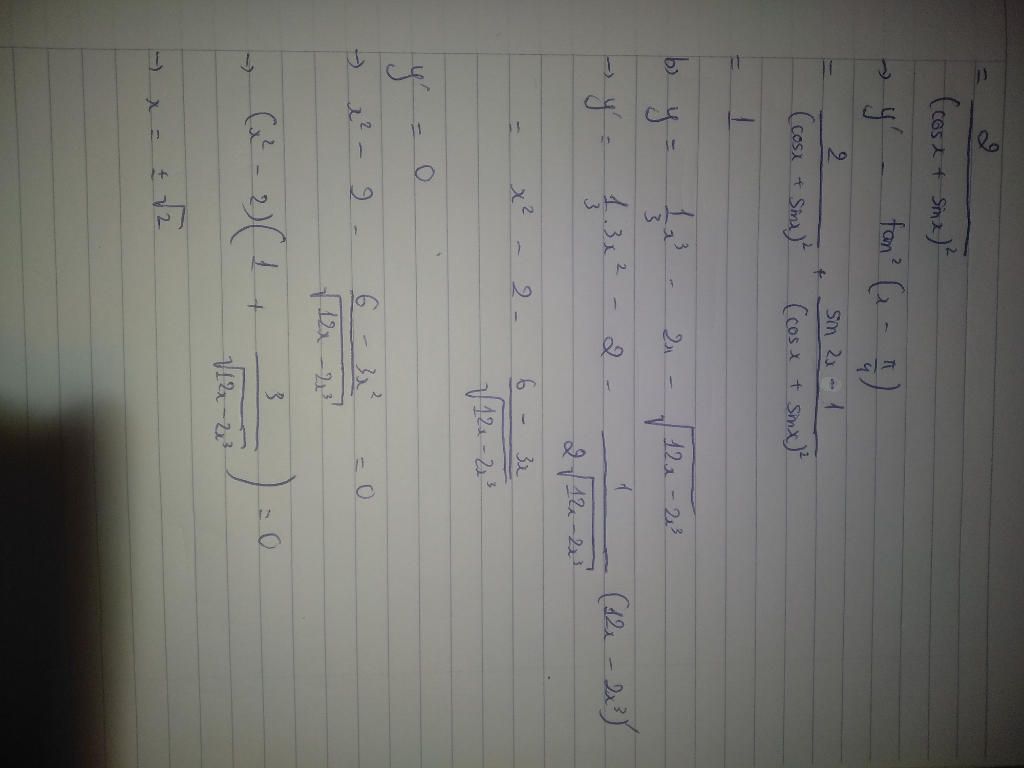 = 2/(cosx + sinx)²
→ y' - tan² (x - π/4)
= 2/(cosx + sinx)² + sin 2x - 1/(cos x + sinx)²
= 1
b) y = 1/3 x³ - 2x - √(12x - 2x³)
→ y' = 1/3 . 3x² - 2 - 1/(2√(12x - 2x³)) (12x - 2x³)
= x² - 2 - (6 - 3x)/√(12x - 2x³)
y' = 0
→ x² - 2 - (6 - 3x²)/√(12x - 2x³) = 0
→ (x² - 2)(1 + 3/√(12x - 2x³)) = 0
→ x = ± √2